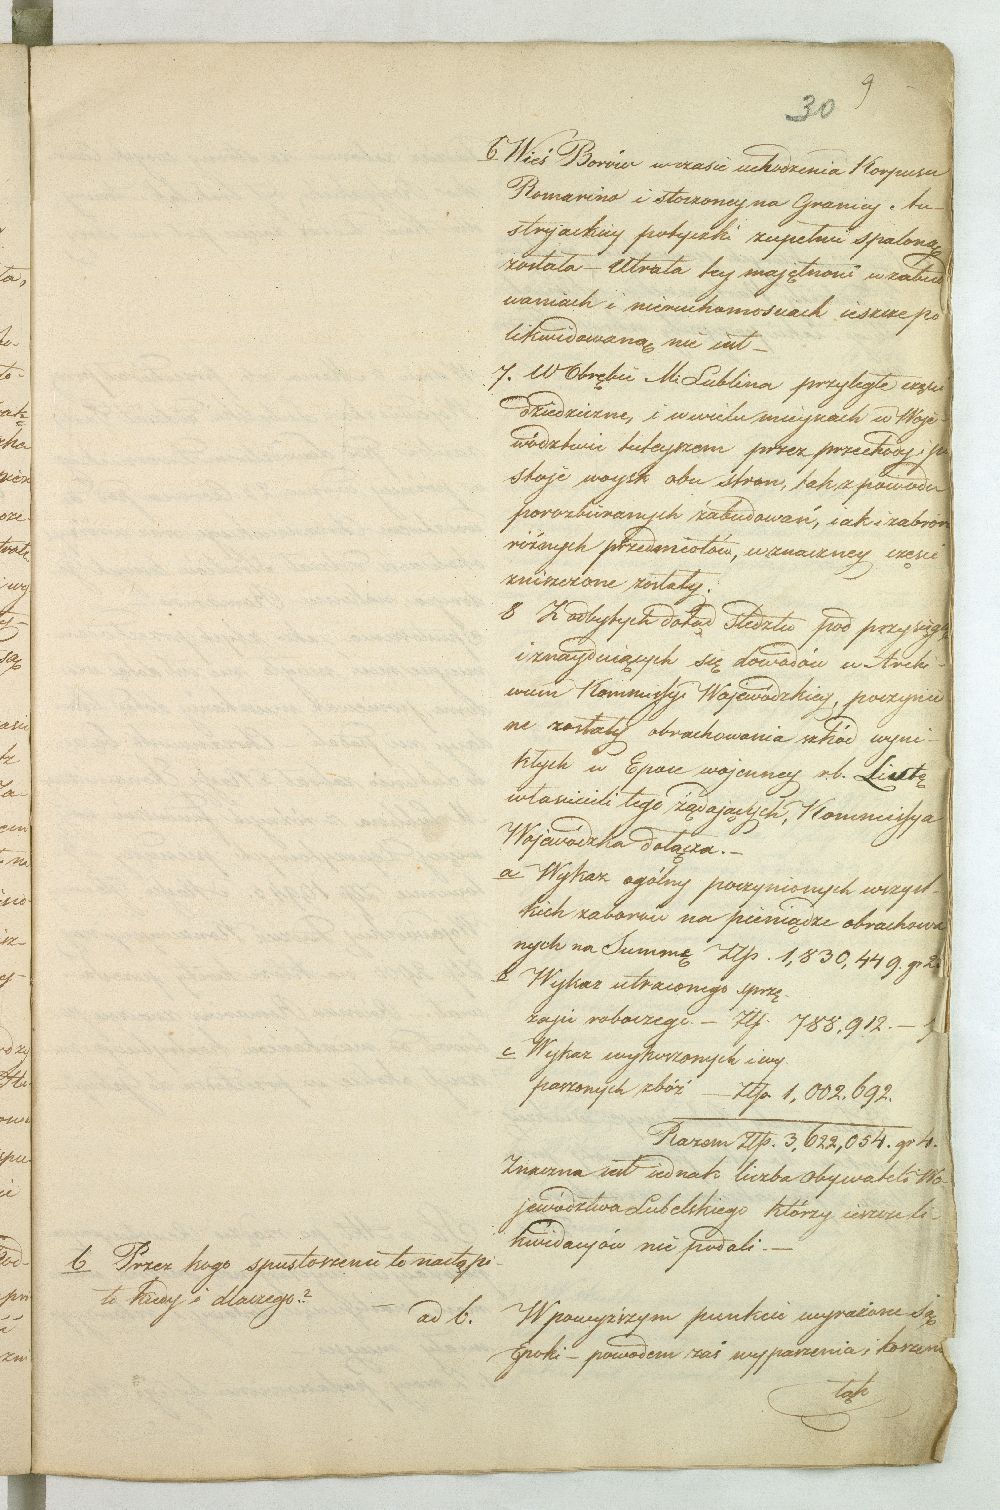 9
30
6 Wieś Borów w czasie uchodzenia Korpusu
Romarino i stoczoney na Granicy Au-
stryackiey potyczki zupełnie spaloną
została — Utrata tey majętności w zabudo
waniach i nieruchomościach ieszcze po
likwidowaną nie iest —
7. W Obrębie M. Lublina przyległe części
dziedziczne, i w wielu mieyscach w Woje-
wództwie tuteyszem przez przechody i po
stoje woysk obu stron, tak z powodu
porozbieranych zabudowań, iak i zabrań
różnych przedmiotów, w znaczney części
zniszczone zostały.
8 Z odbytych dotąd Sledztw pod przysięgą
i znayduiących się dowodów w Archi-
wum Kommissyi Wojewódzkiey, poczynio
ne zostały obrachowania szkód wyni-
kłych w Epoce wojenney r.b. Listę
właścicieli tego żądających, Kommissya
Wojewódzka dołącza. —
a Wykaz ogólny poczynionych wszyst-
kich zaborów na pieniądze obrachowa
nych na Summę Złp. 1,830,449. gr
b Wykaz utraconego sprzę-
żaju roboczego. — Złp. 788,912. —
c Wykaz wykoszonych i wy
paszonych zbóż — Złp 1,002,692.
Razem Złp. 3,622,054. gr 4.
Znaczna iest iednak liczba obywateli Wo-
jewództwa Lubelskiego którzy ieszcze li-
kwidacyów nie podali. —
b Przez kogo spustoszenie to nastąpi-
ło kiedy i dlaczego?
— ad b. W powyższym punkcie wyrażone są
Epoki — powodem zaś wypaszenia i koszenia
łąk